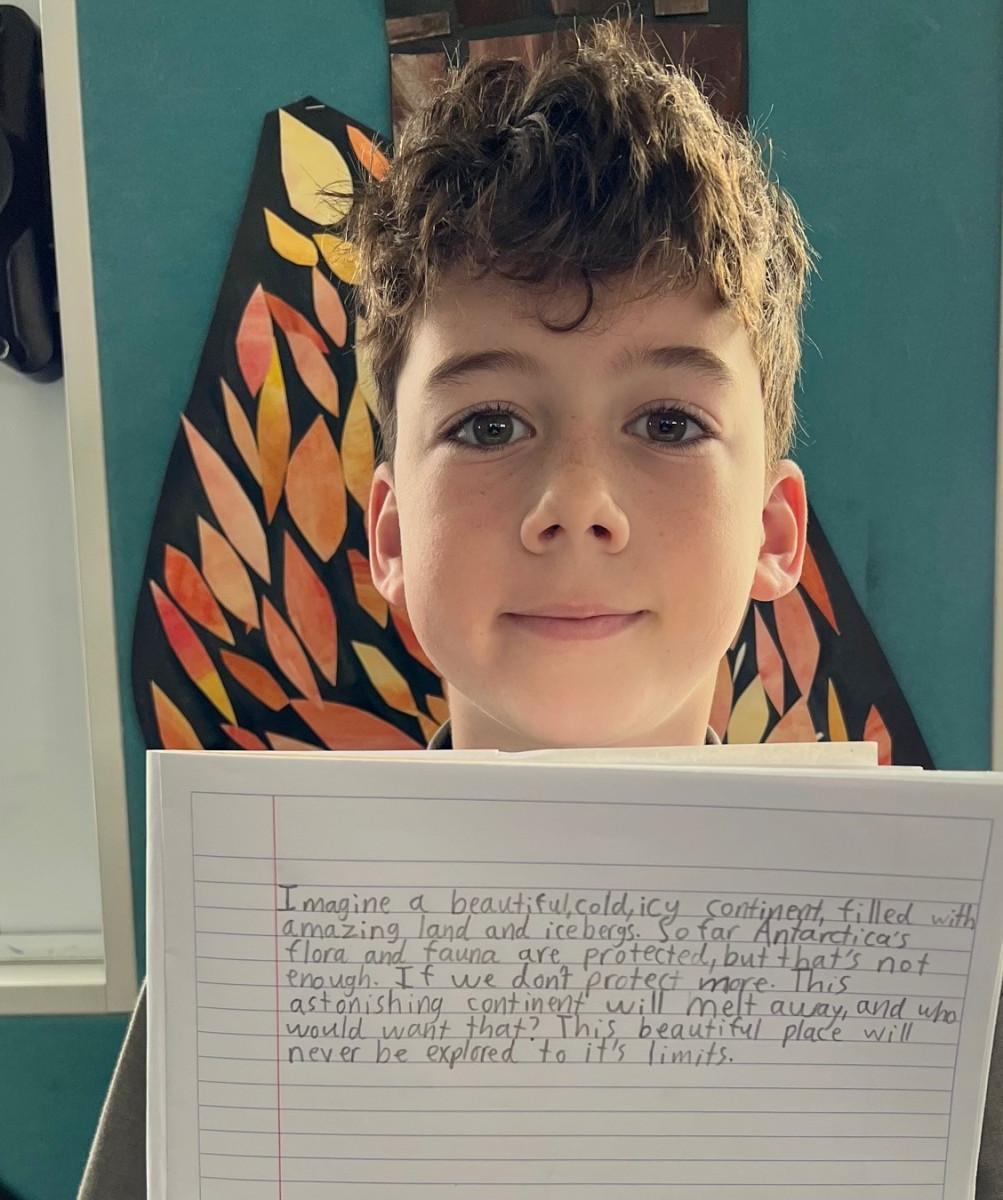 Imagine a beautiful,cold,icy continent, filled with
amazing land and icebergs. So far Antarctica's
flora and fauna are protected, but that's not
enough. If we don't protect more. This
astonishing continent will melt away, and who
would want that? This beautiful place will
never be explored to it's limits.